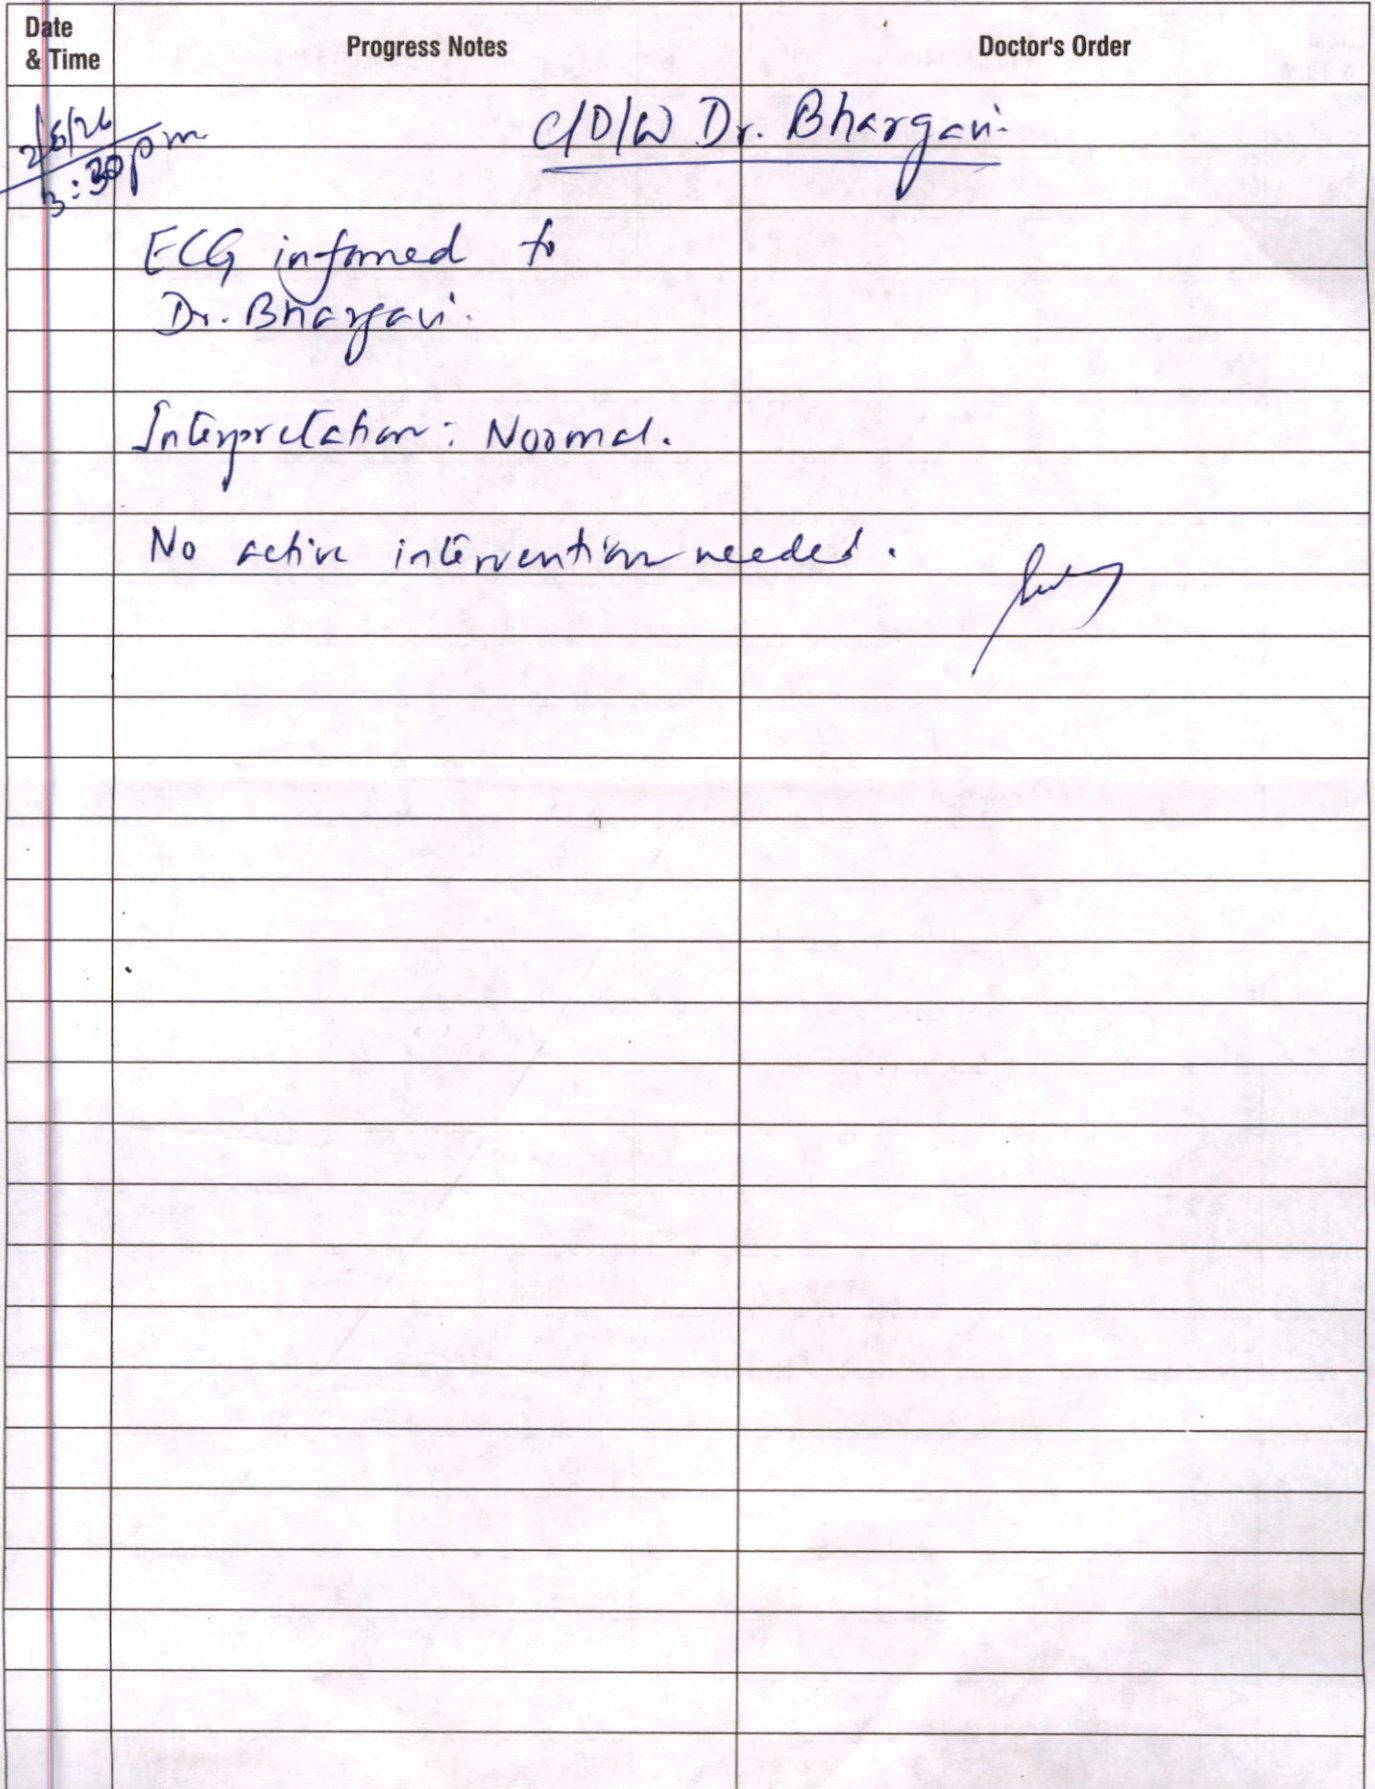 Date
& Time
Progress Notes
Doctor's Order
2/6/26
3:30pm
C/D/W Dr. Bhargavi.
ECG informed to
Dr. Bhargavi.
Interpretation: Normal.
No active intervention needed.